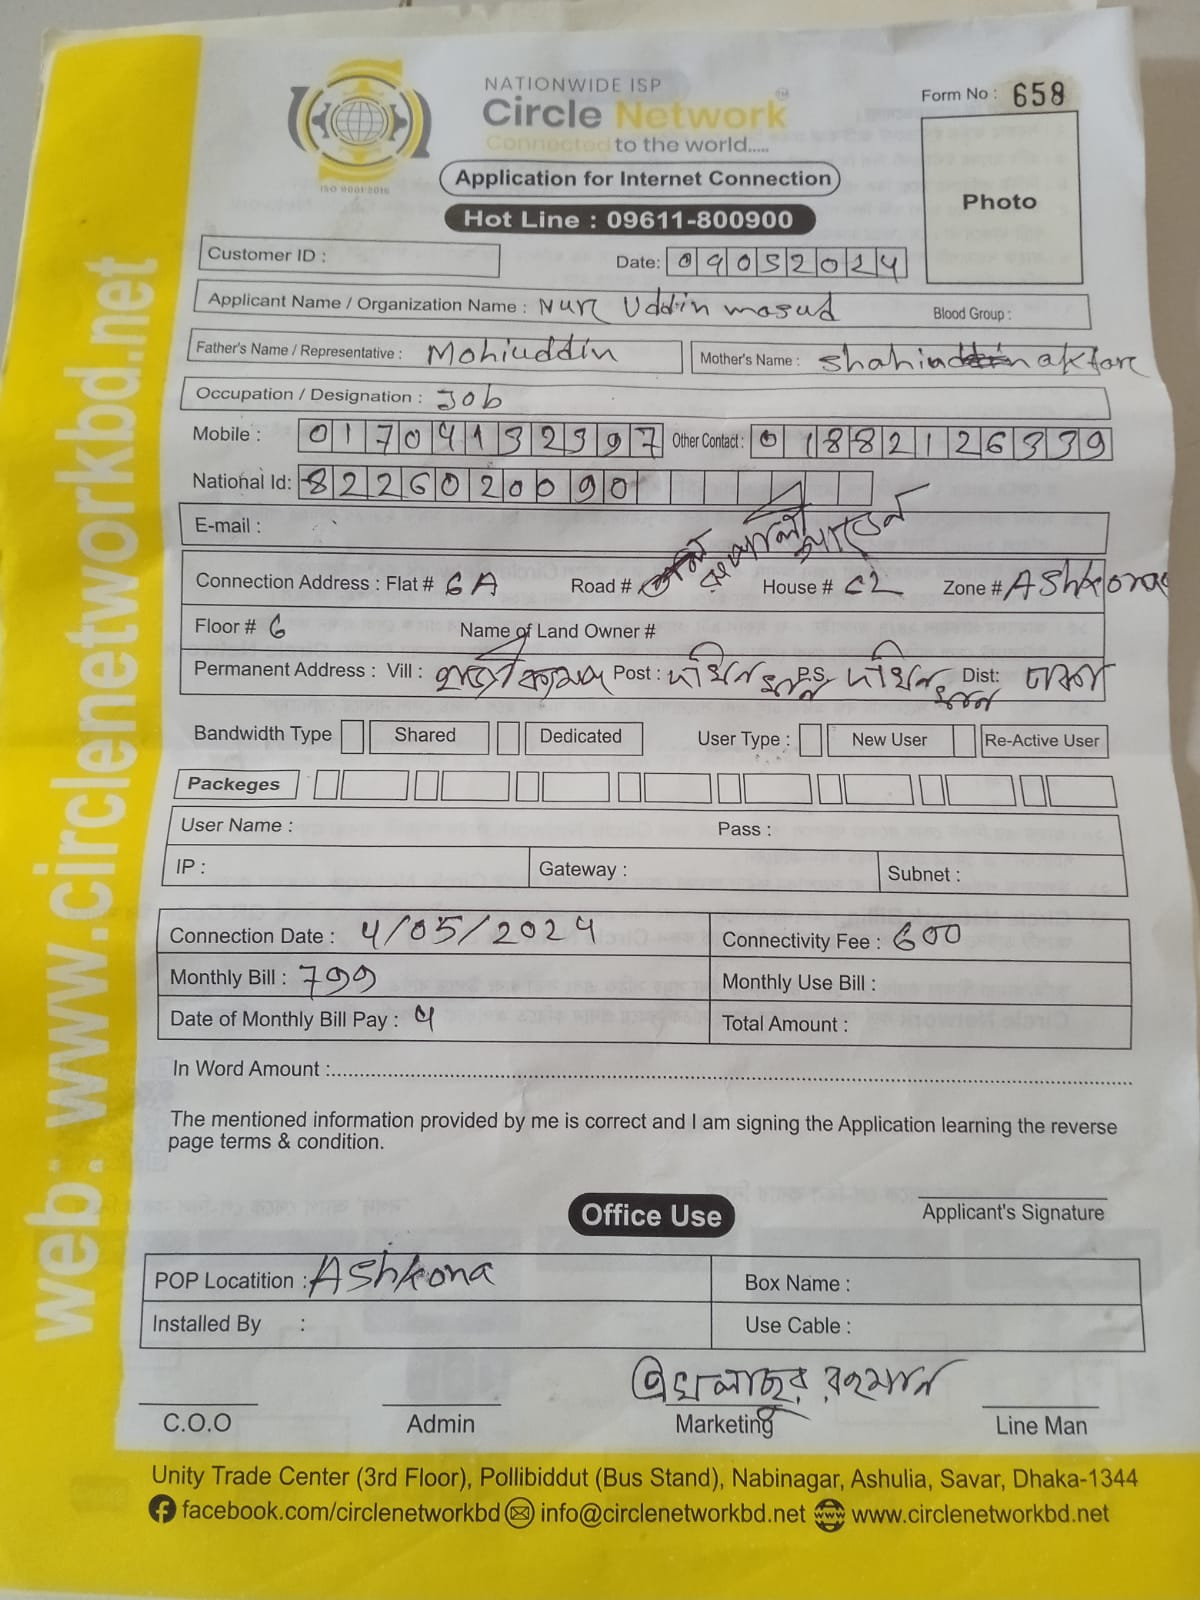 NATIONWIDE ISP
Circle Network™
Connected to the world.....
ISO 9001:2015
Form No : 658
Photo
Application for Internet Connection
Hot Line : 09611-800900
Customer ID :
Date: 09052024
Applicant Name / Organization Name : Nur Uddin masud
Blood Group :
Father's Name / Representative : Mohiuddin
Mother's Name : Shahin aktar
Occupation / Designation : Job
Mobile : 01704132397 Other Contact : 01882126339
National Id: 8226020090
E-mail :
Connection Address : Flat # 6A Road # House # C2 Zone # Ashkona
Floor # 6 Name of Land Owner #
Permanent Address : Vill : Post : দক্ষিণ খান P.S দক্ষিণ খান Dist: ঢাকা
Bandwidth Type Shared Dedicated User Type : New User Re-Active User
Packeges
User Name : Pass :
IP : Gateway : Subnet :
Connection Date : 4/05/2024 Connectivity Fee : 600
Monthly Bill : 799 Monthly Use Bill :
Date of Monthly Bill Pay : 4 Total Amount :
In Word Amount :
The mentioned information provided by me is correct and I am signing the Application learning the reverse
page terms & condition.
Office Use
Applicant's Signature
POP Locatition : Ashkona Box Name :
Installed By : Use Cable :
রহমান
C.O.O Admin Marketing Line Man
Unity Trade Center (3rd Floor), Pollibiddut (Bus Stand), Nabinagar, Ashulia, Savar, Dhaka-1344
facebook.com/circlenetworkbd info@circlenetworkbd.net www.circlenetworkbd.net
web: www.circlenetworkbd.net